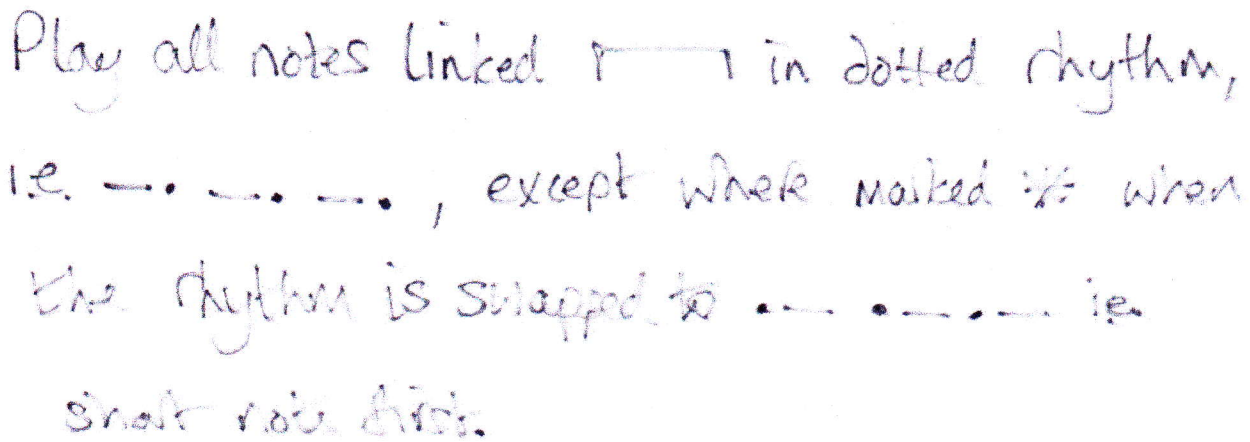 Play all notes linked ┌──┐ in dotted rhythm,
i.e. —. —. —. , except where marked * when
the rhythm is swapped to .— .— .— i.e.
short note first.